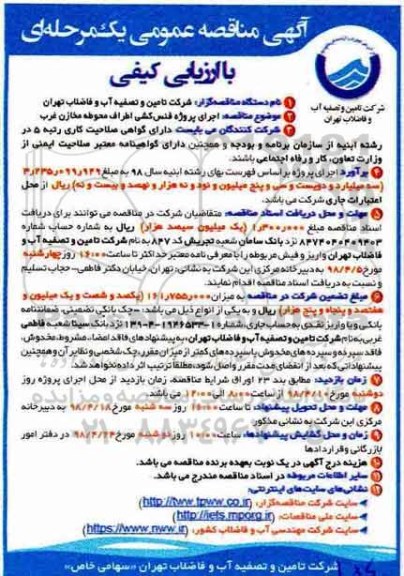 آگهی مناقصه عمومی یک‌مرحله‌ای
با ارزیابی کیفی
شرکت تامین و تصفیه آب
و فاضلاب تهران
۱ نام دستگاه مناقصه‌گزار: شرکت تامین و تصفیه آب و فاضلاب تهران
۲ موضوع مناقصه: اجرای پروژه فنس‌کشی اطراف محوطه مخازن غرب
۳ شرکت کنندگان می بایست دارای گواهی صلاحیت کاری رتبه ۵ در
رشته ابنیه از سازمان برنامه و بودجه و همچنین دارای گواهینامه معتبر صلاحیت ایمنی از
وزارت تعاون، کار و رفاه اجتماعی باشند.
۴ برآورد اجرای پروژه بر اساس فهرست بهای رشته ابنیه سال ۹۸ به مبلغ ۳٫۲۳۵٫۰۹۹٫۹۲۹
(سه میلیارد و دویست و سی و پنج میلیون و نود و نه هزار و نهصد و بیست و نه) ریال از محل
اعتبارات جاری شرکت می باشد.
۵ مهلت و محل دریافت اسناد مناقصه: متقاضیان شرکت در مناقصه می توانند برای دریافت
اسناد مناقصه مبلغ ۱٫۳۰۰٫۰۰۰ (یک میلیون سیصد هزار) ریال به شماره حساب شماره
نزد بانک سامان شعبه تجریش کد ۸۴۷ به نام شرکت تامین و تصفیه آب و
فاضلاب تهران واریز و فیش مربوطه را با معرفی نامه معتبر حداکثر تا ساعت ۱۶:۰۰ روز چهارشنبه
مورخ ۹۸/۴/۵ به دبیرخانه مرکزی این شرکت به نشانی: تهران خیابان دکتر فاطمی- حجاب تسلیم
و نسبت به دریافت اسناد مناقصه اقدام نمایند.
۶ مبلغ تضمین شرکت در مناقصه به میزان ۱۶۱٫۷۵۵٫۰۰۰ (یکصد و شصت و یک میلیون و
هفتصد و پنجاه و پنج هزار) ریال و به یکی از انواع ذیل می باشد: -چک بانکی تضمینی، ضمانتنامه
بانکی و یا واریز نقدی به حساب جاری شماره نزد بانک سینا شعبه فاطمی
غربی به نام شرکت تامین و تصفیه آب و فاضلاب تهران، به پیشنهادهای فاقد امضاء، مشروط، مخدوش،
فاقد سپرده و سپرده های مخدوش یا سپرده های کمتر از میزان مقرر، چک شخصی و نظایر آن و همچنین
پیشنهاداتی که بعد از انقضای مدت مقرر واصل شود، مطلقا ترتیب اثر داده نخواهد شد.
۷ زمان بازدید: مطابق بند ۲۳ اوراق شرایط مناقصه، زمان بازدید از محل اجرای پروژه روز
دوشنبه مورخ ۹۸/۴/۱۰ از ساعت ۸:۰۰ الی ۱۲:۰۰ می باشد.
۸ مهلت و محل تحویل پیشنهاد: تا ساعت ۱۶:۰۰ روز سه شنبه مورخ ۹۸/۴/۱۸ به دبیرخانه
مرکزی این شرکت به نشانی مذکور
۹ زمان و محل گشایش پیشنهادها: ساعت ۱۰:۰۰ روز دوشنبه مورخ ۹۸/۴/۲۴ در دفتر امور
بازرگانی و قراردادها
۱۰ هزینه درج آگهی در یک نوبت بعهده برنده مناقصه می باشد.
۱۱ سایر اطلاعات مربوطه در اسناد مناقصه مندرج می باشد.
۱۲ نشانی‌های سایت‌های اینترنتی:
سایت شرکت مناقصه‌گزار: (http://tww.tpww.co.ir)
سایت ملی مناقصات: (http://iets.mporg.ir)
سایت شرکت مهندسی آب و فاضلاب کشور: (https://www.nww.ir)
شرکت تامین و تصفیه آب و فاضلاب تهران «سهامی خاص»